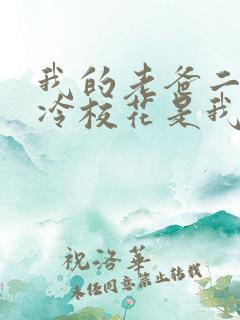 我的老爸二
冷板花是我
祝洛华
未经同意禁止转载